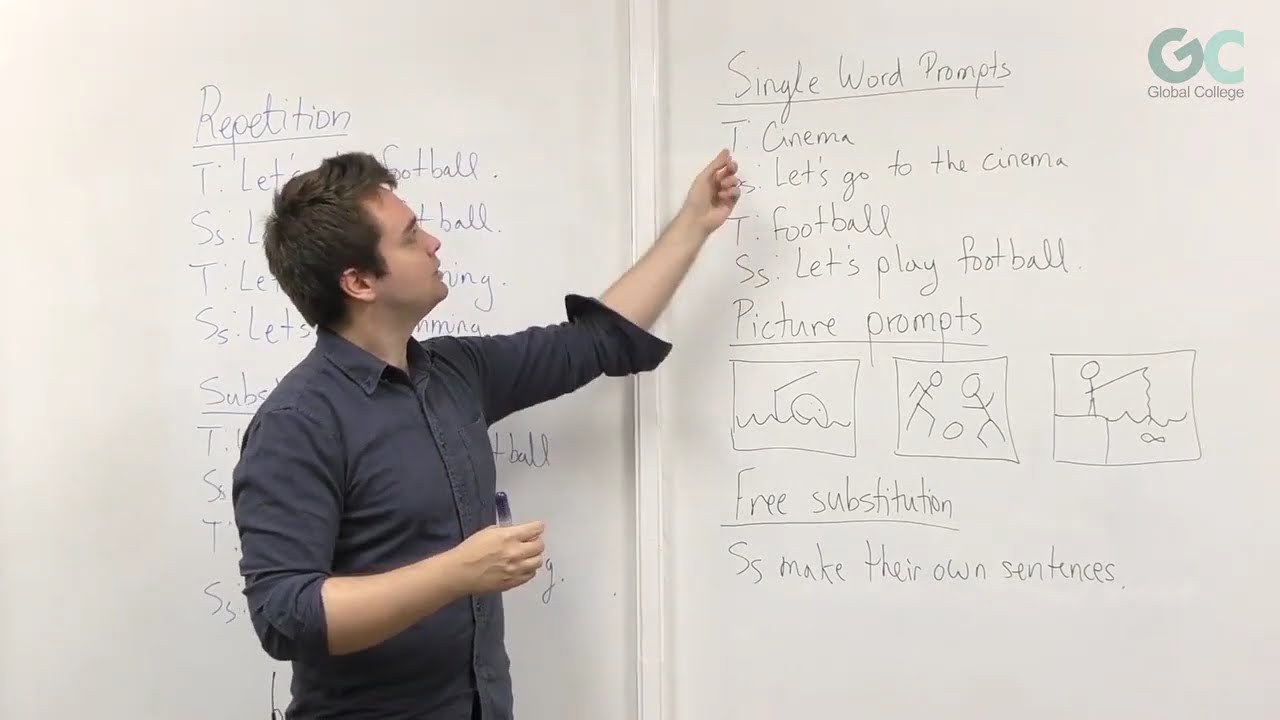 Repetition
T: Let's football.
Ss: L tball.
T: Let ming.
Ss: Let's mming
Subs
T: tball
Ss
T:
Ss: g.
Single Word Prompts
T: Cinema
Ss: Let's go to the cinema
T: football
Ss: Let's play football.
Picture prompts
Free substitution
Ss make their own sentences.
GC
Global College